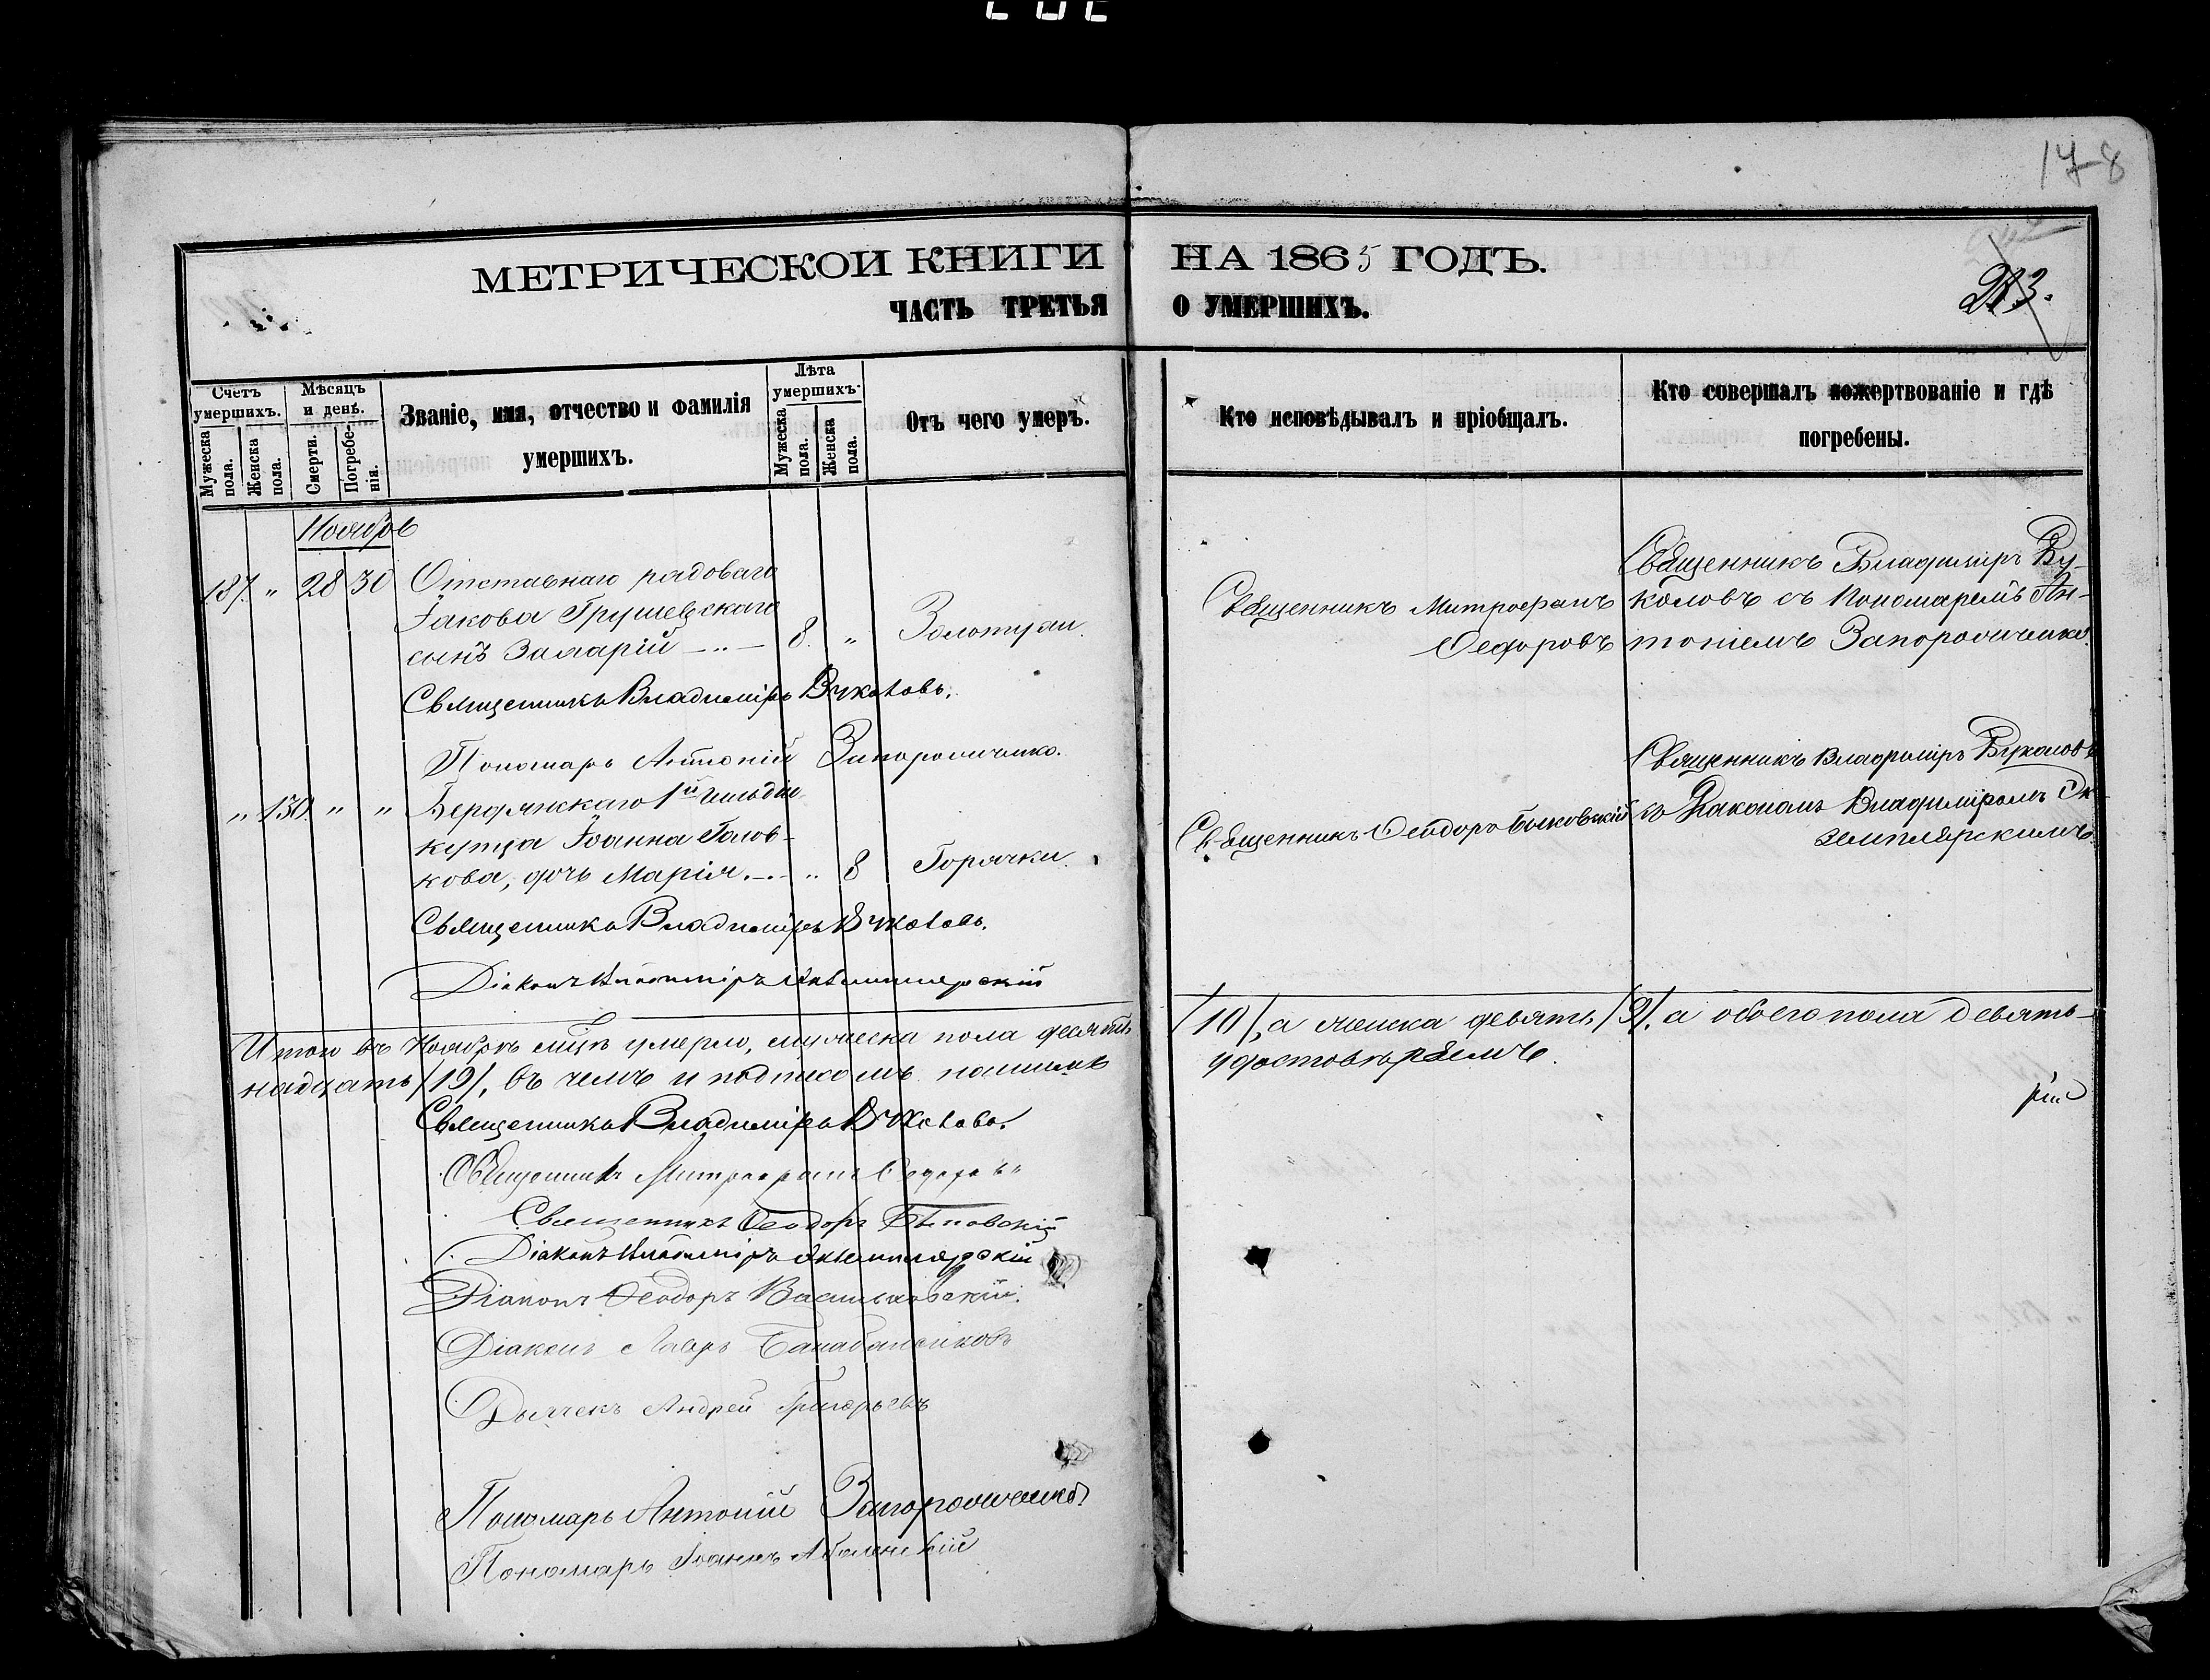 178
МЕТРИЧЕСКОЙ КНИГИ НА 1865 ГОДЪ.
ЧАСТЬ ТРЕТЬЯ О УМЕРШИХЪ.
213.
Счетъ умершихъ.
Мужеска пола.
Женска пола.
Мѣсяцъ и день.
Смерти.
Погребенія.
Званіе, имя, отчество и фамилія умершихъ.
Лѣта умершихъ.
Мужеска пола.
Женска пола.
Отъ чего умеръ.
Кто исповѣдывалъ и пріобщалъ.
Кто совершалъ пожертвованіе и гдѣ погребены.
Ноябрь
187. " 28 30 Отставнаго рядоваго
Іакова Грушевскаго
сынъ 8. " Золотухи.
Священникъ Митрофанъ
Федоровъ
Священникъ Владиміръ Ву-
коловъ съ Пономаремъ Ан-
тоніемъ Запорожченко.
Священникъ Владиміръ Вуколовъ.
Пономарь Антоній Запорожченко.
" 130 " " Бердянскаго 1й гильдіи
купца Іоанна Голов-
кова, дочь Марія. " 8 Горячки.
Священникъ Феодоръ Быковскій
Священникъ Владиміръ Вуколовъ
съ Діакономъ Владиміромъ Эк-
земплярскимъ.
Священникъ Владиміръ Вуколовъ.
Діаконъ Владиміръ Экземплярскій
Итого въ Ноябрѣ мцѣ умерло, мужеска пола десять /10/, а женска девять /9/, а обоего пола девять-
надцать /19/, въ чемъ и подписомъ нашимъ удостовѣряемъ.
Священникъ Владиміръ Вуколовъ.
Священникъ Митрофанъ Федоровъ
Священникъ Феодоръ Быковскій
Діаконъ Владиміръ Экземплярскій
Діаконъ Феодоръ Васильковскій.
Діаконъ Лавръ
Дьячекъ Андрей Григорьевъ
Пономарь Антоній Запорожченко
Пономарь Іоаннъ